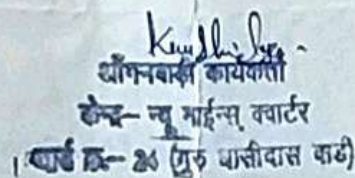 आँगनबाड़ी कार्यकर्ता
केन्द्र- न्यू माईन्स् क्वार्टर
वार्ड क्र.- 26 (गुरु घासीदास वार्ड)